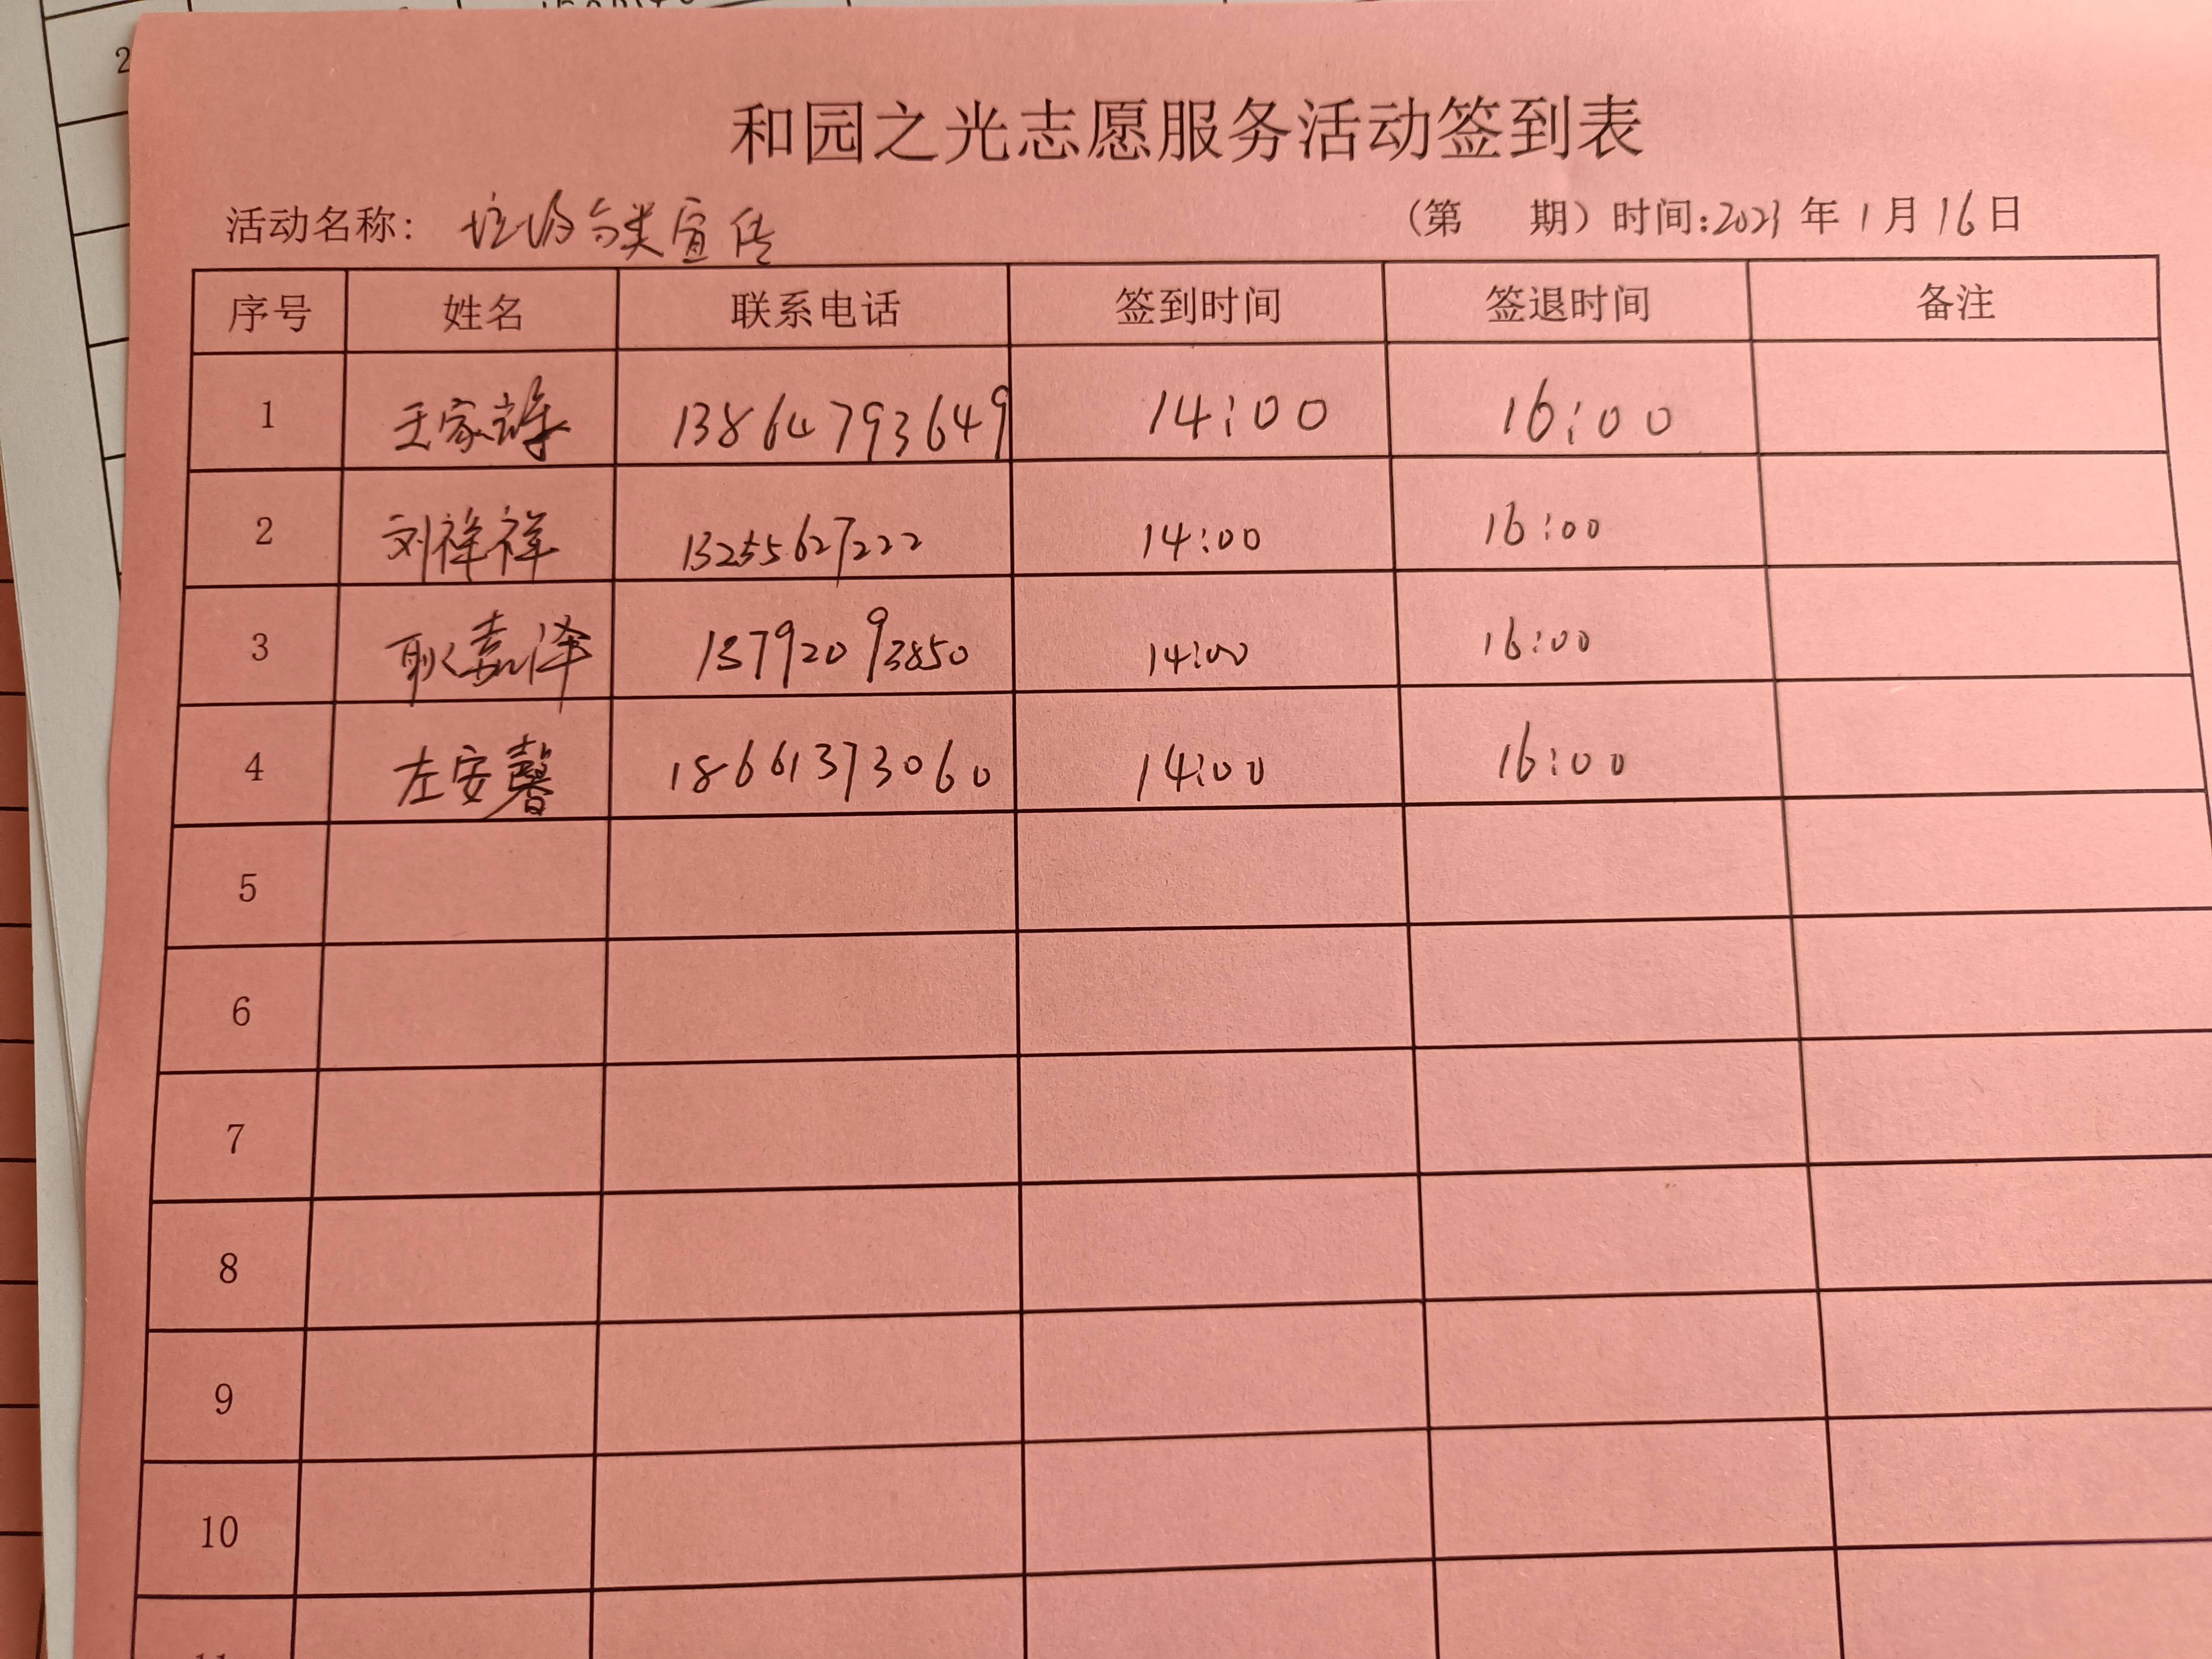 2
和园之光志愿服务活动签到表
活动名称: 垃圾分类宣传 (第 期) 时间:2023 年 1 月 16 日
序号 姓名 联系电话 签到时间 签退时间 备注
1 王家 13864793649 14:00 16:00
2 刘祥祥 13255627222 14:00 16:00
3 耿嘉泽 13792093850 14:00 16:00
4 左安馨 18661373060 14:00 16:00
5
6
7
8
9
10
11